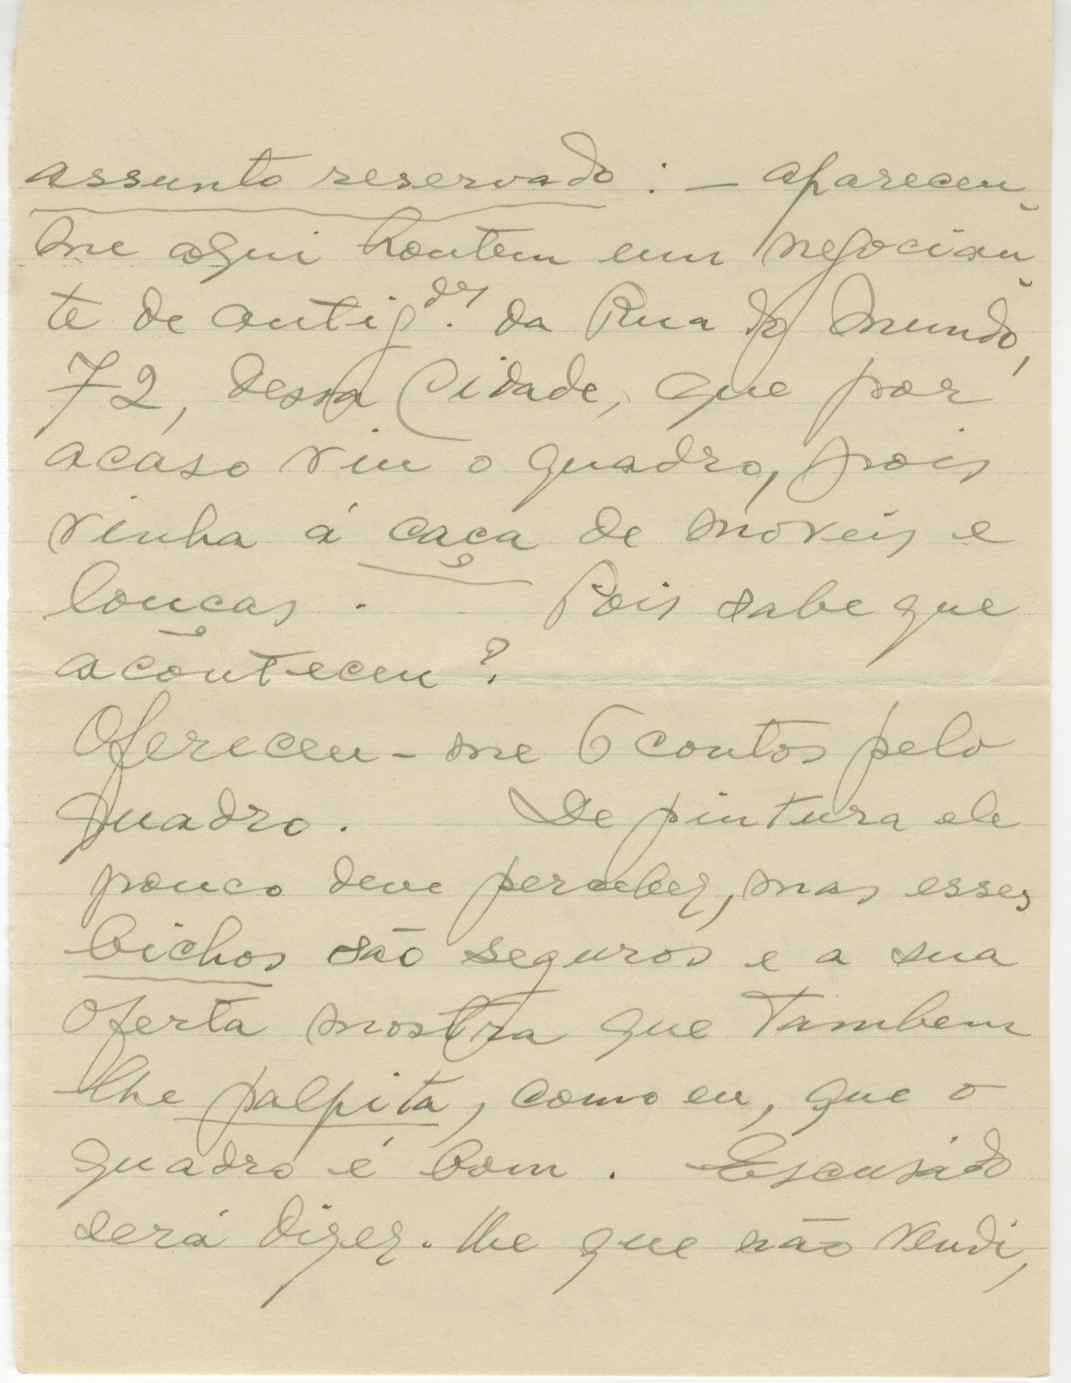 assunto reservado : — apareceu-
me aqui hontem um negocian-
te de antig.des da Rua do Mundo,
72, dessa Cidade, que por
acaso viu o quadro, pois
vinha á caça de moveis e
louças . Pois sabe que
aconteceu ?
Ofereceu-me 6 contos pelo
quadro. De pintura ele
pouco deve perceber, mas esses
bichos são seguros e a sua
oferta mostra que tambem
lhe palpita, como eu, que o
quadro é bom . Escusado
será dizer-lhe que não vendi,